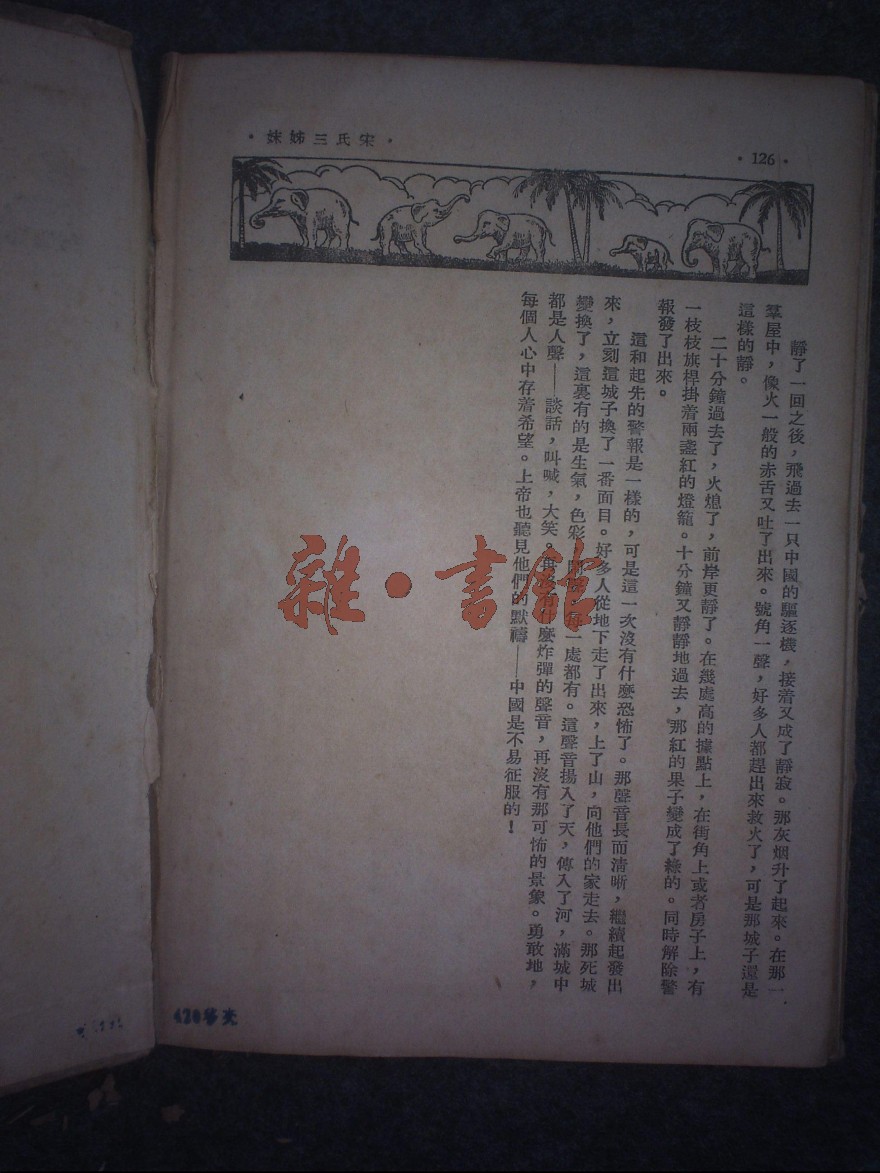 ·宋氏三姊妹·
·126·
靜了一回之後，飛過去一只中國的驅逐機，接着又成了靜寂。那灰烟升了起來。在那一
羣屋中，像火一般的赤舌又吐了出來。號角一聲，好多人都趕出來救火了，可是那城子還是
這樣的靜。
二十分鐘過去了，火熄了，前岸更靜了。在幾處高的據點上，在街角上或者房子上，有
一枝枝旗桿掛着兩盞紅的燈籠。十分鐘又靜靜地過去，那紅的果子變成了綠的。同時解除警
報發了出來。
這和起先的警報是一樣的，可是這一次沒有什麼恐怖了。那聲音長而清晰，繼續起發出
來，立刻這城子換了一番面目。好多人從地下走了出來，上了山，向他們的家走去。那死城
變換了，這裏有的是生氣，色彩，每一處都有。這聲音揚入了天，傳入了河，滿城中
都是人聲——談話，叫喊，大笑。再什麼炸彈的聲音，再沒有那可怖的景象。勇敢地，
每個人心中存着希望。上帝也聽見他們的默禱——中國是不易征服的！
雜·書館